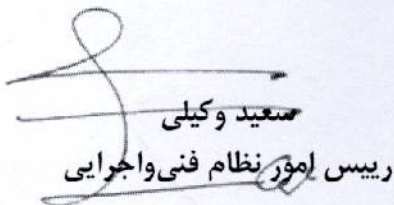 سعید وکیلی
رییس امور نظام فنی‌واجرایی